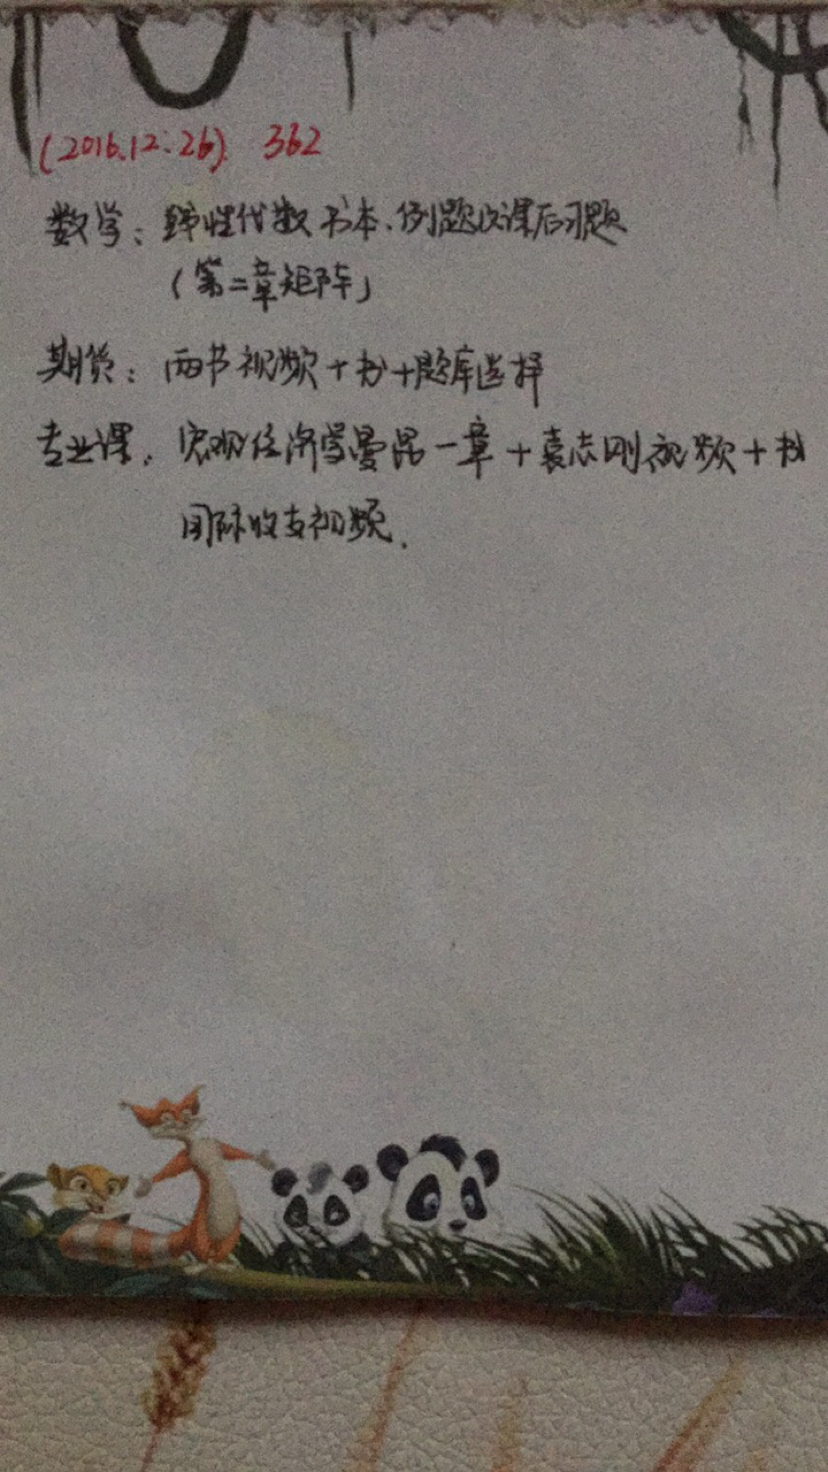 (2016.12.26). 362
数学：线性代数书本.例题及课后习题
（第二章矩阵）
期货：两节视频+书+题库选择
专业课：宏观经济学曼昆一章+袁志刚视频+书
国际收支视频.